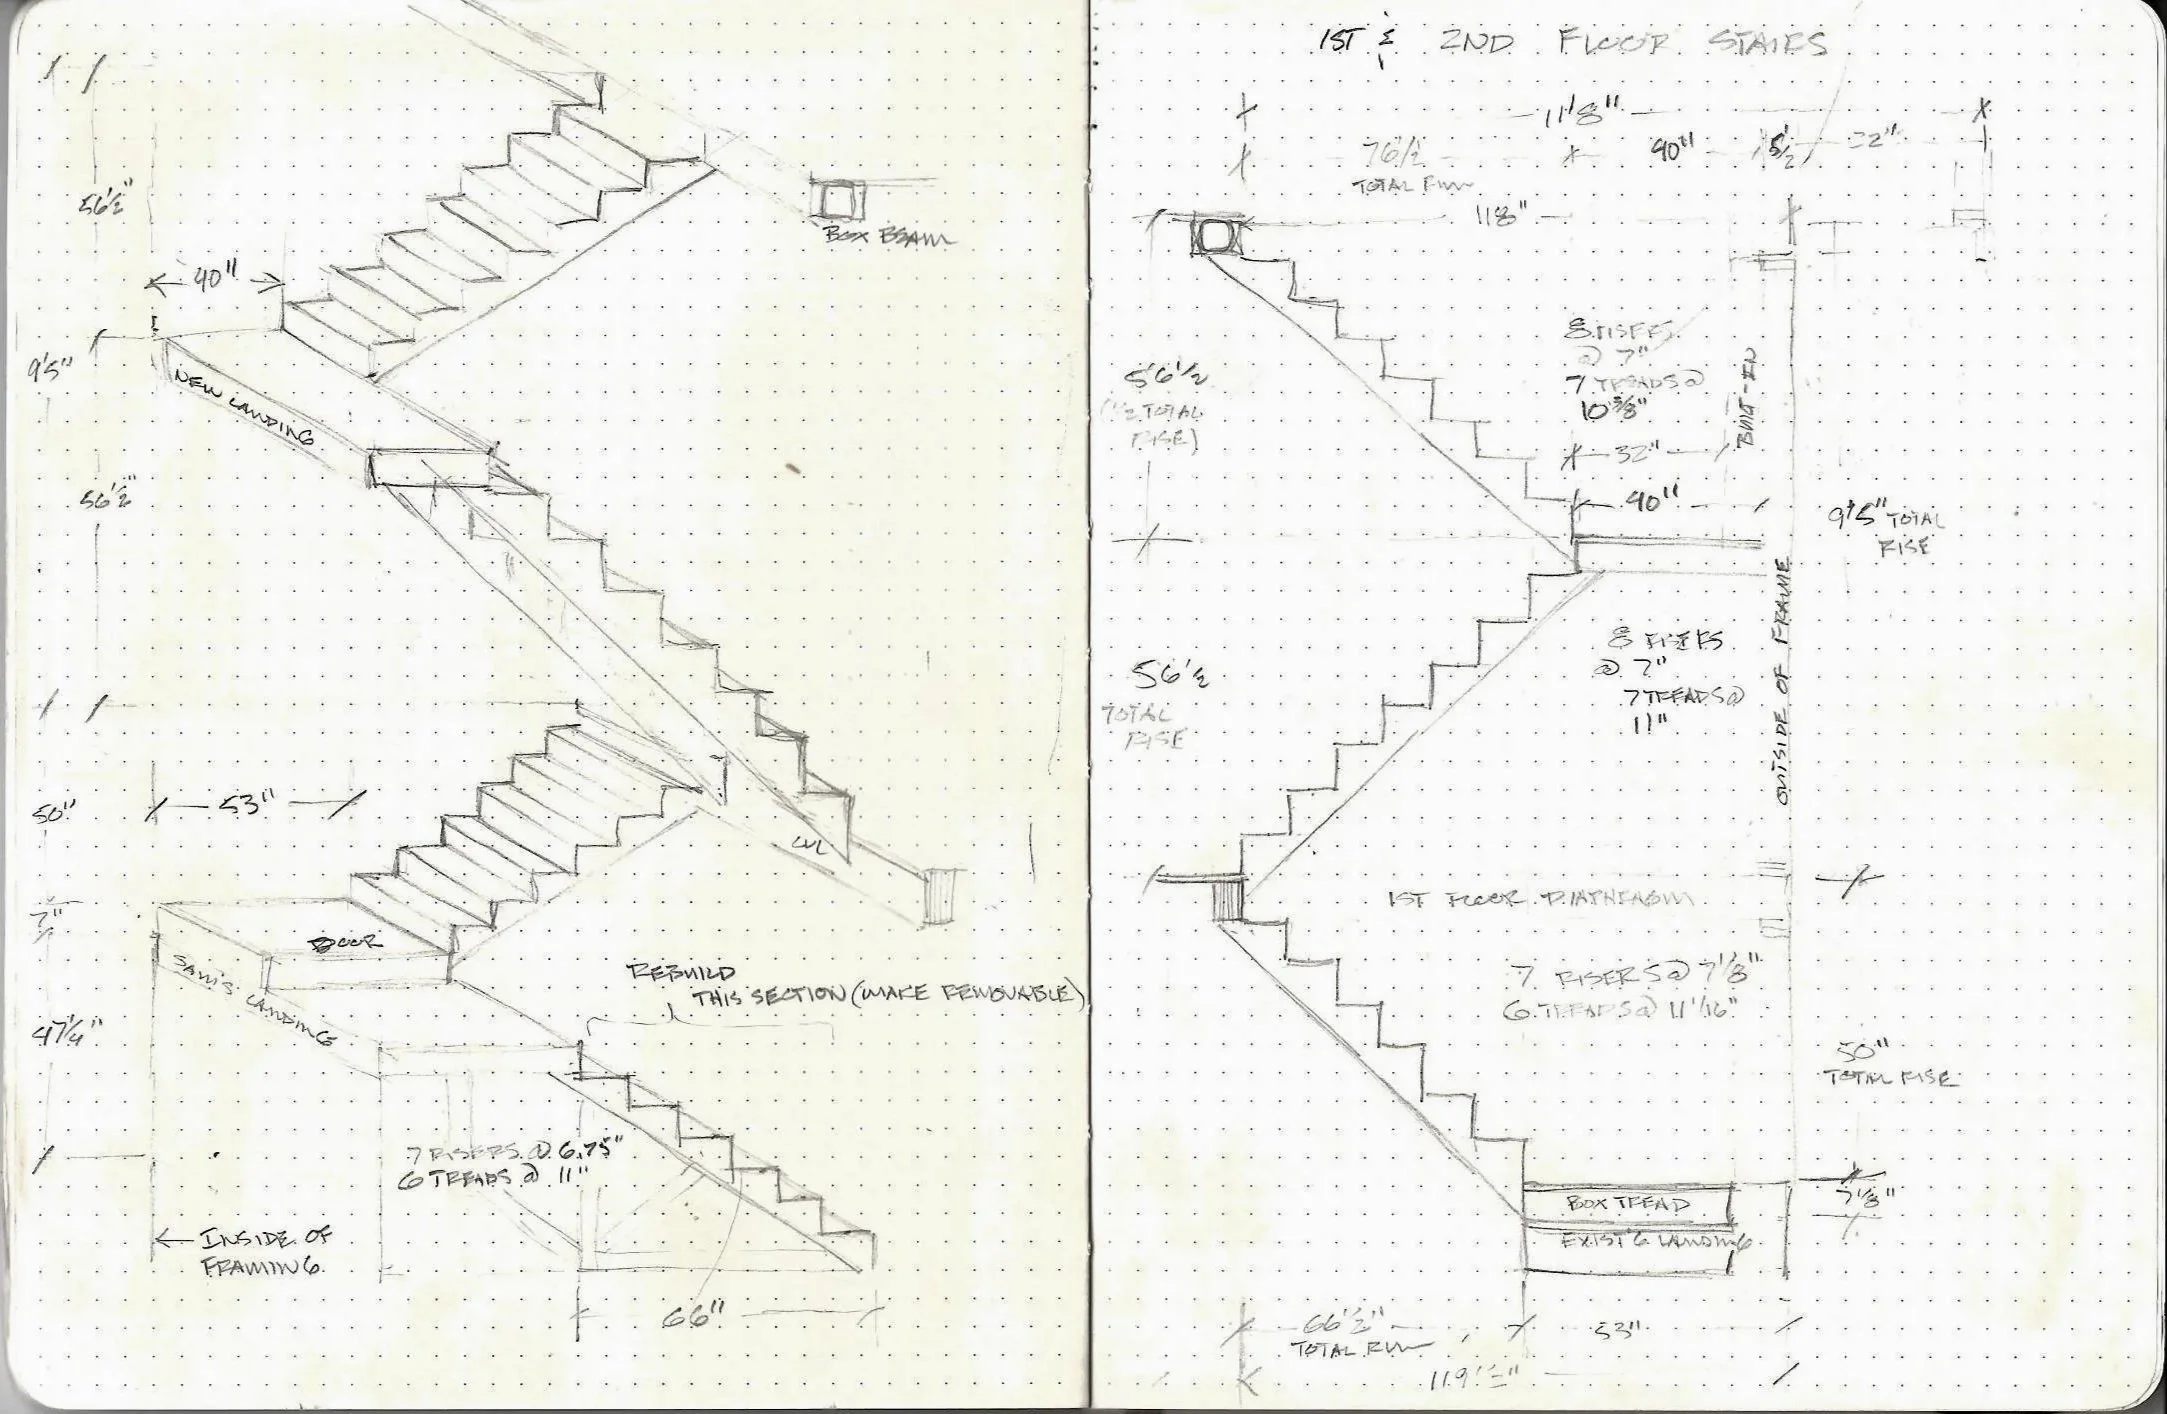 56½"
40"
BOX BEAM
9'5"
NEW LANDING
56½"
50"
53"
LVL
7"
DOOR
SAM'S LANDING
REBUILD
THIS SECTION (MAKE REMOVABLE)
47¼"
7 RISERS @ 6.75"
6 TREADS @ 11"
← INSIDE OF
FRAMING
66"
1ST & 2ND FLOOR STAIRS
11'8"
76½
TOTAL RUN
40"
5½
22"
118"
8 RISERS
@ 7"
7 TREADS @
10 5/8"
BUILT-IN
5'6½
(½ TOTAL
RISE)
32"
40"
9'5" TOTAL
RISE
OUTSIDE OF FRAME
8 RISERS
@ 7"
7 TREADS @
11"
56½
TOTAL
RISE
1ST FLOOR DIAPHRAGM
7 RISERS @ 7⅛"
6 TREADS @ 11 1/16"
50"
TOTAL RISE
BOX TREAD
7⅛"
EXIST'G LANDING
66½"
TOTAL RUN
53"
119½"